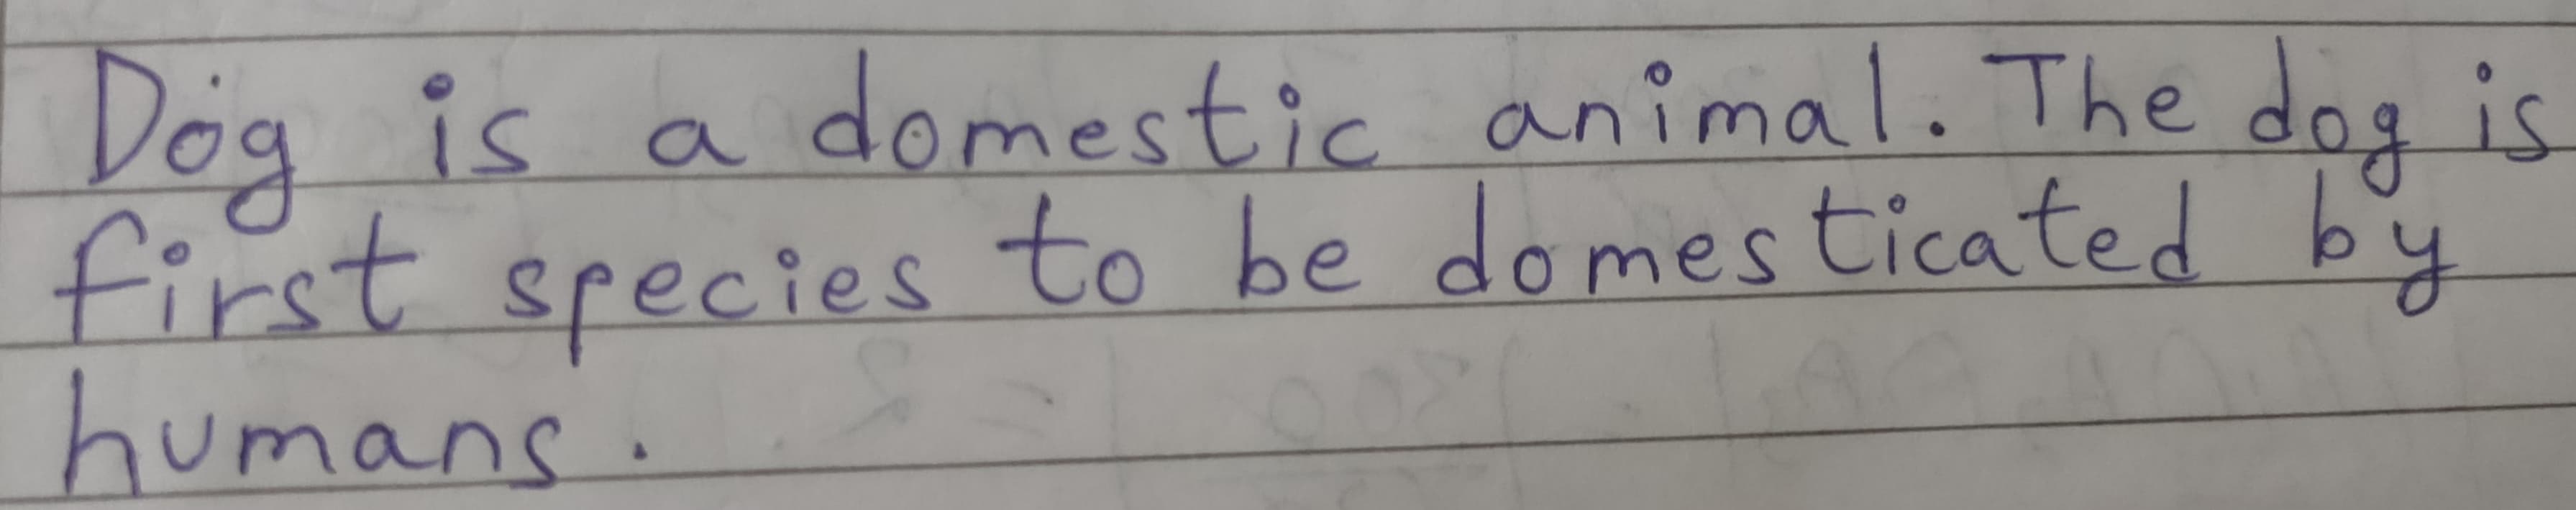 Dog is a domestic animal. The dog is
first species to be domesticated by
humans.